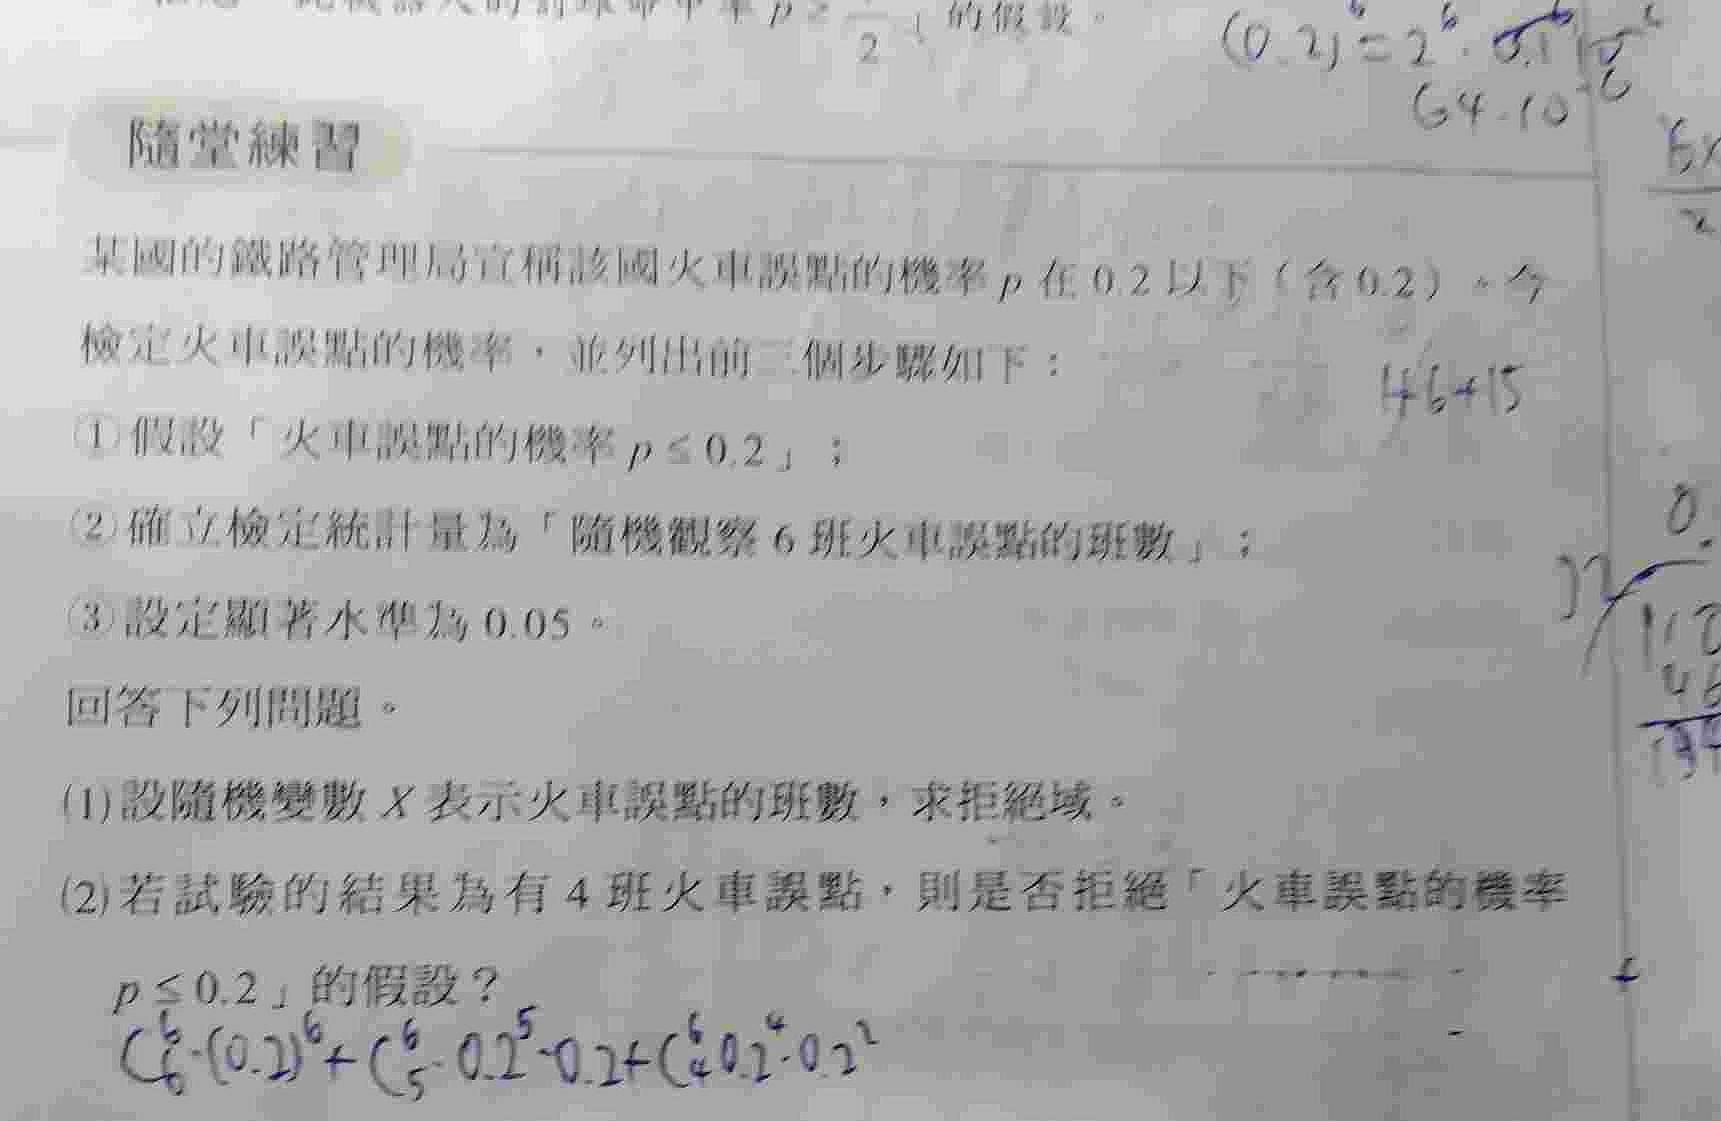 2
的假設。
(0.2)⁶=2⁶·0.1⁶
64·10⁻⁶
隨堂練習
某國的鐵路管理局宣稱該國火車誤點的機率 p 在 0.2 以下（含 0.2）。今
檢定火車誤點的機率，並列出前三個步驟如下：
46+15
①假設「火車誤點的機率 p ≤ 0.2」；
②確立檢定統計量為「隨機觀察 6 班火車誤點的班數」；
③設定顯著水準為 0.05。
回答下列問題。
(1)設隨機變數 X 表示火車誤點的班數，求拒絕域。
(2)若試驗的結果為有 4 班火車誤點，則是否拒絕「火車誤點的機率
p ≤ 0.2」的假設？
C⁶₆·(0.2)⁶+C⁶₅·0.2⁵·0.2+C⁶₄0.2⁴·0.2²